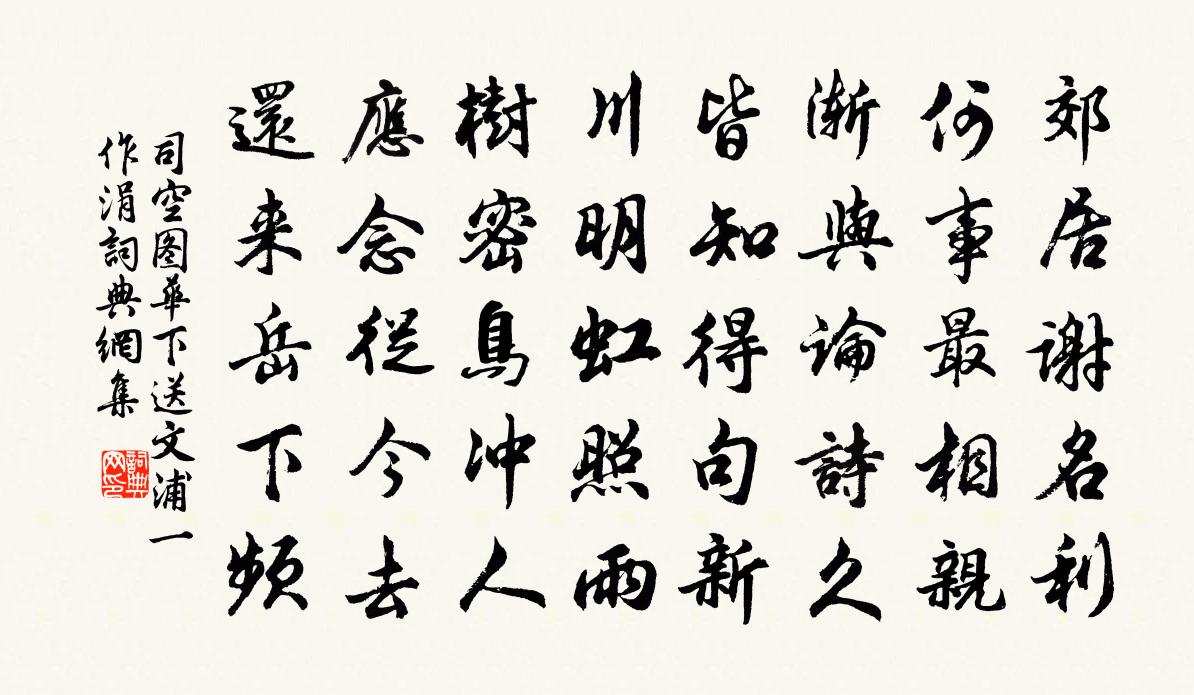 郊居謝名利
何事最相親
漸與論詩久
皆知得句新
川明虹照雨
樹密鳥冲人
應念從今去
還来岳下頻
司空图華下送文浦一
作涓詞典網集
詞典网印